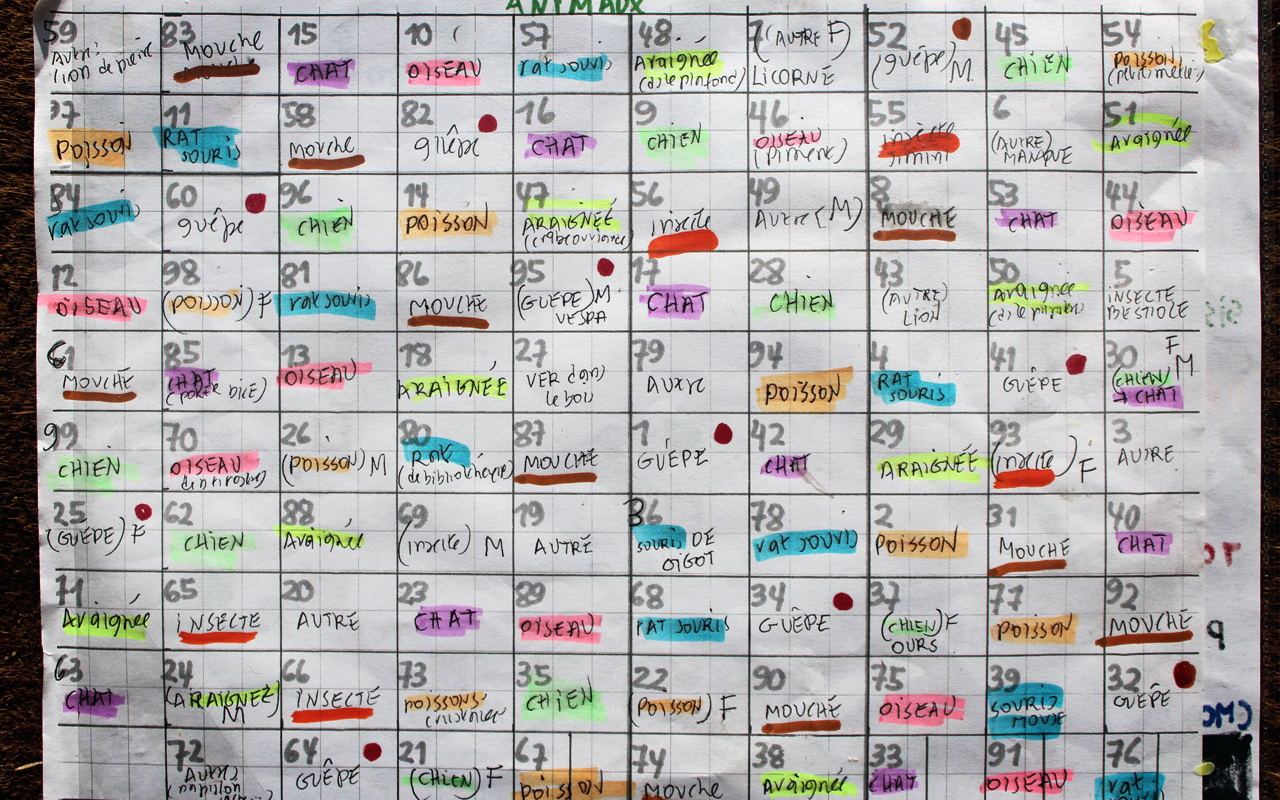 ANIMAUX
59 83 15 10 57 48 7 (AUTRE F) 52 45 54
Autre: MOUCHE CHAT OISEAU rat souris Araignée LICORNE (guêpe) M CHIEN POISSON
lion de pierre (ds le plafond)
37 11 58 82 16 9 46 55 6 51
POISSON RAT MOUCHE guêpe CHAT CHIEN OISEAU insecte (AUTRE) Araignée
SOURIS (piment) MANQUE
84 60 96 14 47 56 49 8 53 44
rat souris guêpe CHIEN POISSON ARAIGNÉE insecte AUTRE (M) MOUCHE CHAT OISEAU
12 98 81 86 95 17 28 43 50 5
OISEAU (POISSON) F rat souris MOUCHE (GUÊPE) M CHAT CHIEN (AUTRE) Araignée INSECTE
VESPA LION BESTIOLE
61 85 13 18 27 79 94 4 41 30 F
MOUCHE CHAT OISEAU ARAIGNÉE VER dans AUTRE POISSON RAT GUÊPE (CHIEN) M
le bois SOURIS + CHAT
99 70 26 80 87 1 42 29 93 3
CHIEN OISEAU (POISSON) M RAT MOUCHE GUÊPE CHAT ARAIGNÉE (insecte) F AUTRE
(de bibliothèque)
25 62 88 69 19 36 78 2 31 40
(GUÊPE) F CHIEN Araignée (insecte) M AUTRE SOURIS DE rat souris POISSON MOUCHE CHAT
GIGOT
71 65 20 23 89 68 34 37 77 92
Araignée INSECTE AUTRE CHAT OISEAU RAT SOURIS GUÊPE (CHIEN) F POISSON MOUCHE
OURS
63 24 66 73 35 22 90 75 39 32
CHAT (ARAIGNEE) INSECTE POISSONS CHIEN (POISSON) F MOUCHE OISEAU SOURIS GUÊPE
M MOUSE
72 64 21 67 74 38 33 91 76
AUTRE GUÊPE (CHIEN) F POISSON Mouche Araignée CHAT OISEAU rat
papillon